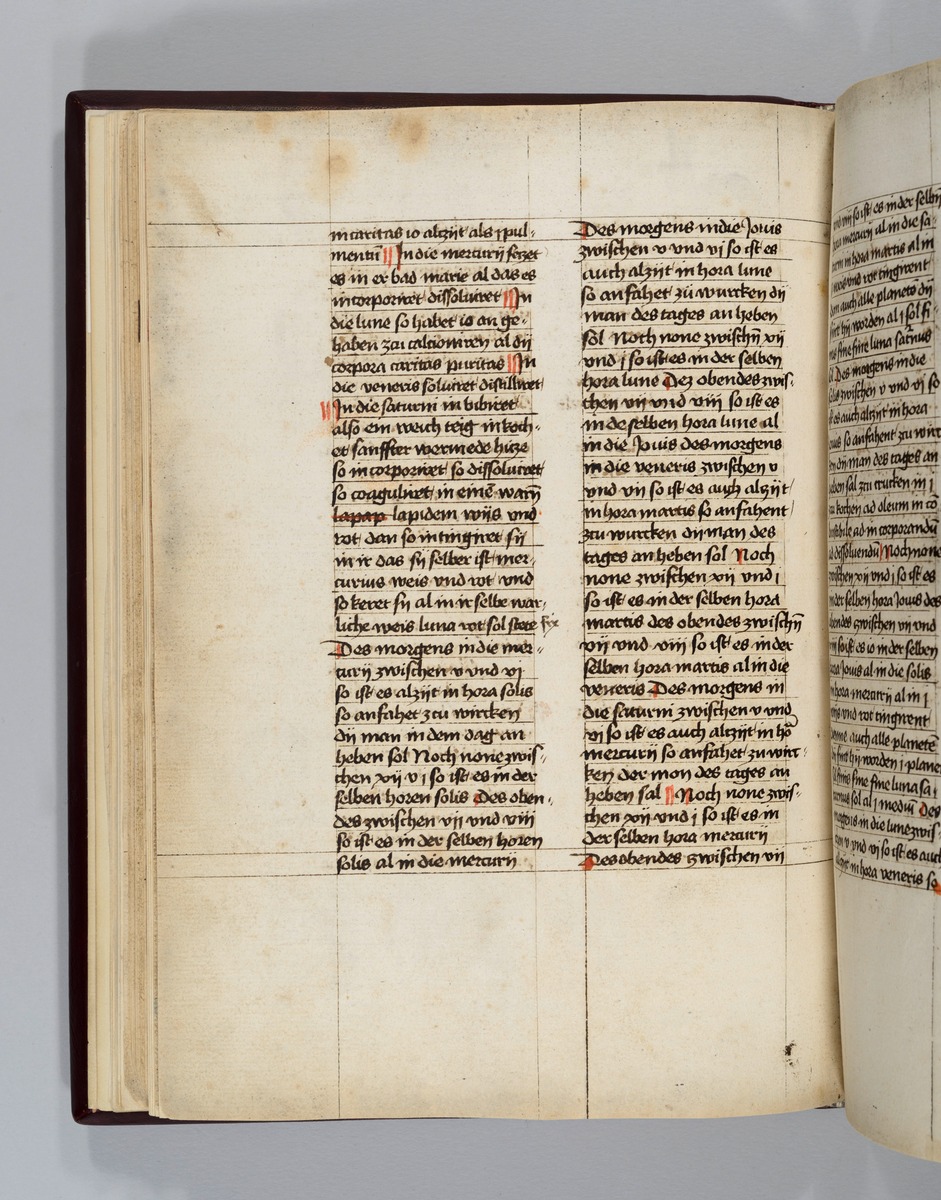 in caritas io altzijt als j pul-
mentū In die mercurij setzet
es in ex bad marie al das es
incorporiret dissoluiret In
die lune so habet io an ge-
haben zcu calcioniren al dij
corpora caritas puritas In
die veneris soluiret distilliret
In die saturni in bibiret
also ein weich teig in koch-
et sanffter wermede hitze
so incorporiret so dissoluiret
so coaguliret in einē warū
lapap lapidem wijs vnd
rot dan so intingiret sij
in ir das sij selber ist mer-
curius weis vnd rot vnd
so keret sij al in ir selbe war-
liche weis luna rot sol stete fix
Des morgens in die mer-
curij zwischen v vnd vj
so ist es alzijt in hora solis
so anfahet zcu wircken
dij man in dem dag an
heben sol Noch none zwis-
chen xij v j so ist es in der
selben horen solis Des oben-
des zwischen vij vnd viij
so ist es in der selben horen
solis al in die mercurij
Des morgens in die Jouis
zwischen v vnd vj so ist es
auch alzijt in hora lune
so anfahet zů wurcken dij
man des tages an heben
sol Noch none zwischē xij
vnd j so ist es in der selben
hora lune Dez obendes zwis-
chen vij vnd viij so ist es
in de selben hora lune al
in die Jouis des morgens
in die veneris zwischen v
vnd vij so ist es auch alzijt
in hora martis so anfahent
zcu wurcken dij man des
tages an heben sol Noch
none zwischen xij vnd j
so ist es in der selben hora
martis des obendes zwischē
vij vnd viij so ist es in der
selben hora martis al in die
veneris Des morgens in
die saturni zwischen v vnd
vj so ist es auch altzijt in ho
mercurij so anfahet zu wirc-
ken der mon des tages an
heben sal Noch none zwis-
chen xij vnd j so ist es in
der selben hora mercurij
Des obendes zwischen vij
vnd viij so ist es in der selbn
hora mercurij al in die sa-
in hora martis al in
vnd rot tingirent
auch alle planetē dij
worden al j sol fi-
fine luna saturnus
Des morgens in die
zwischen v vnd vj so
es auch alzijt in hora
so anfahent zu wirc
dij man des tages an
heben sal zcu trucken in j
zu kochen ad oleum in cō
ad in corporandū
dissoluendū Noch none
zwischen xij vnd j so ist es
in der selben hora Jouis des
obendes zwischen vij vnd
viij so ist es io in der selben
hora Jouis al in die solis
in hora mercurij al in j
vnd rot tingirent
auch alle planetē
hij worden j plane
fine fine luna sa
sol al j mediū Des
morgens in die lune zwis-
chen v vnd vj so ist es auch
alzijt in hora veneris so